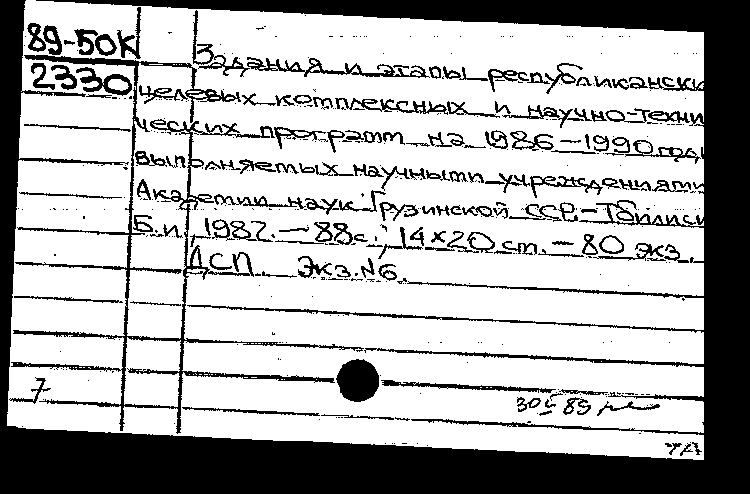 89-50К
2330
Задания и этапы республикански
целевых комплексных и научно-техни
ческих программ на 1986-1990 годы
выполняемых научными учреждениями
Академии наук Грузинской ССР.-Тбилиси
Б.и., 1987.-88с.; 14×20 см.-80 экз.
ДСП. Экз.№6.
7
30 5 89